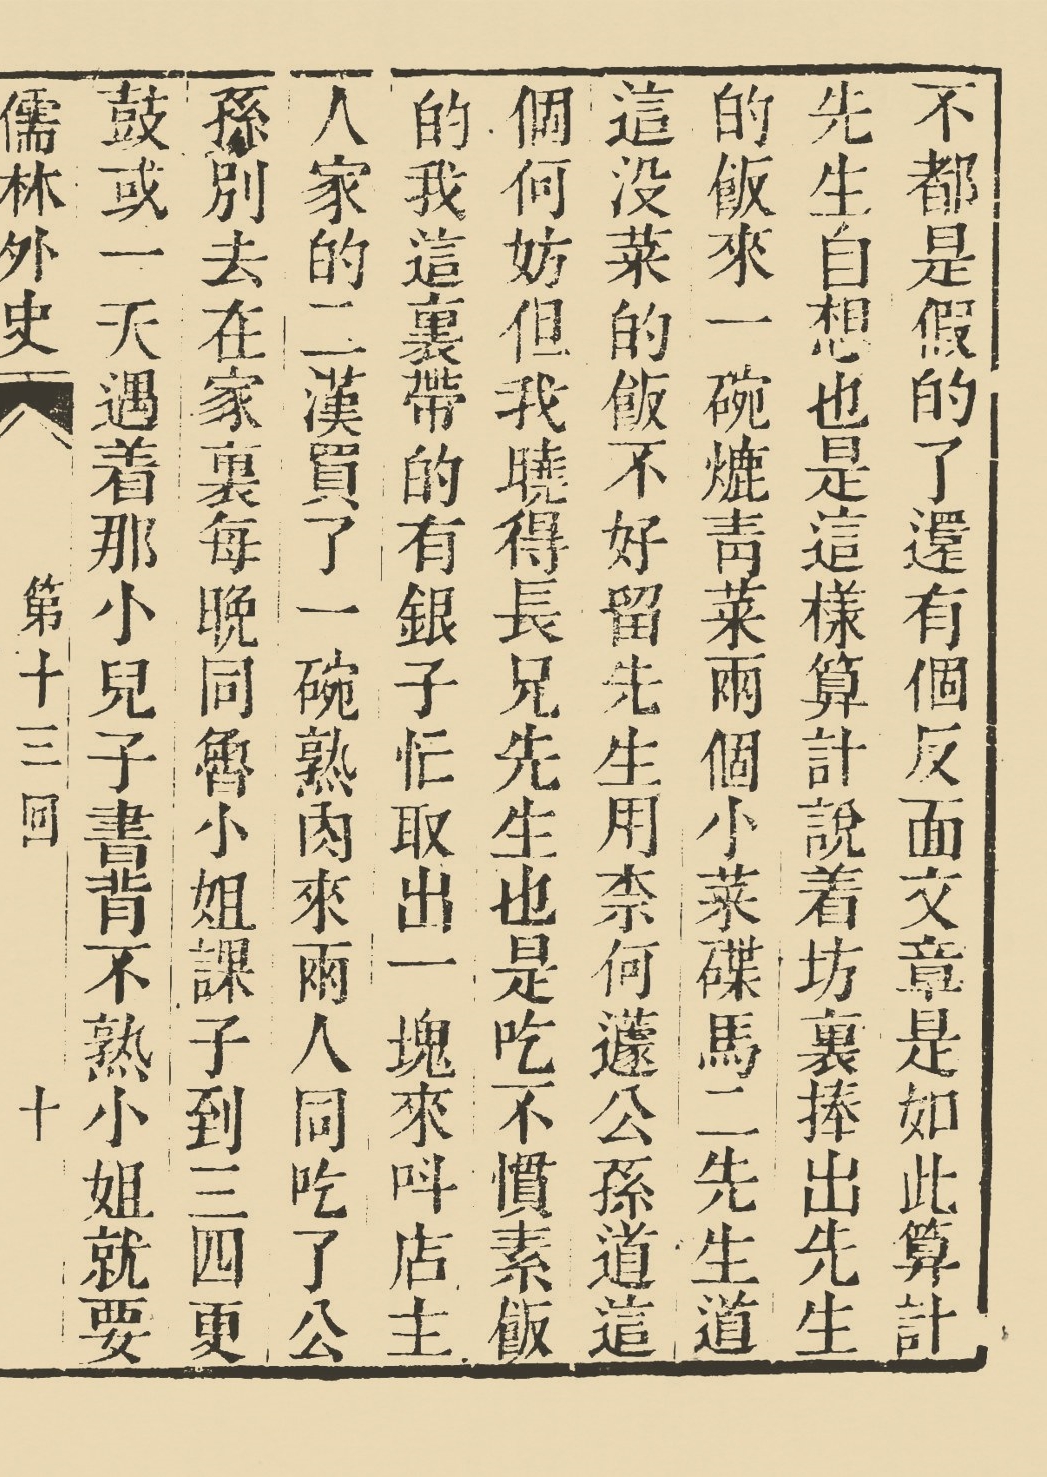 不都是假的了還有個反面文章是如此算計
先生自想也是這樣算計說着坊裏捧出先生
的飯來一碗熝靑菜兩個小菜碟馬二先生道
這没菜的飯不好留先生用柰何蘧公孫道這
個何妨但我曉得長兄先生也是吃不慣素飯
的我這裏帶的有銀子忙取出一塊來呌店主
人家的二漢買了一碗熟肉來兩人同吃了公
孫別去在家裏每晚同魯小姐課子到三四更
鼓或一天遇着那小兒子書背不熟小姐就要
儒林外史 第十三回 十